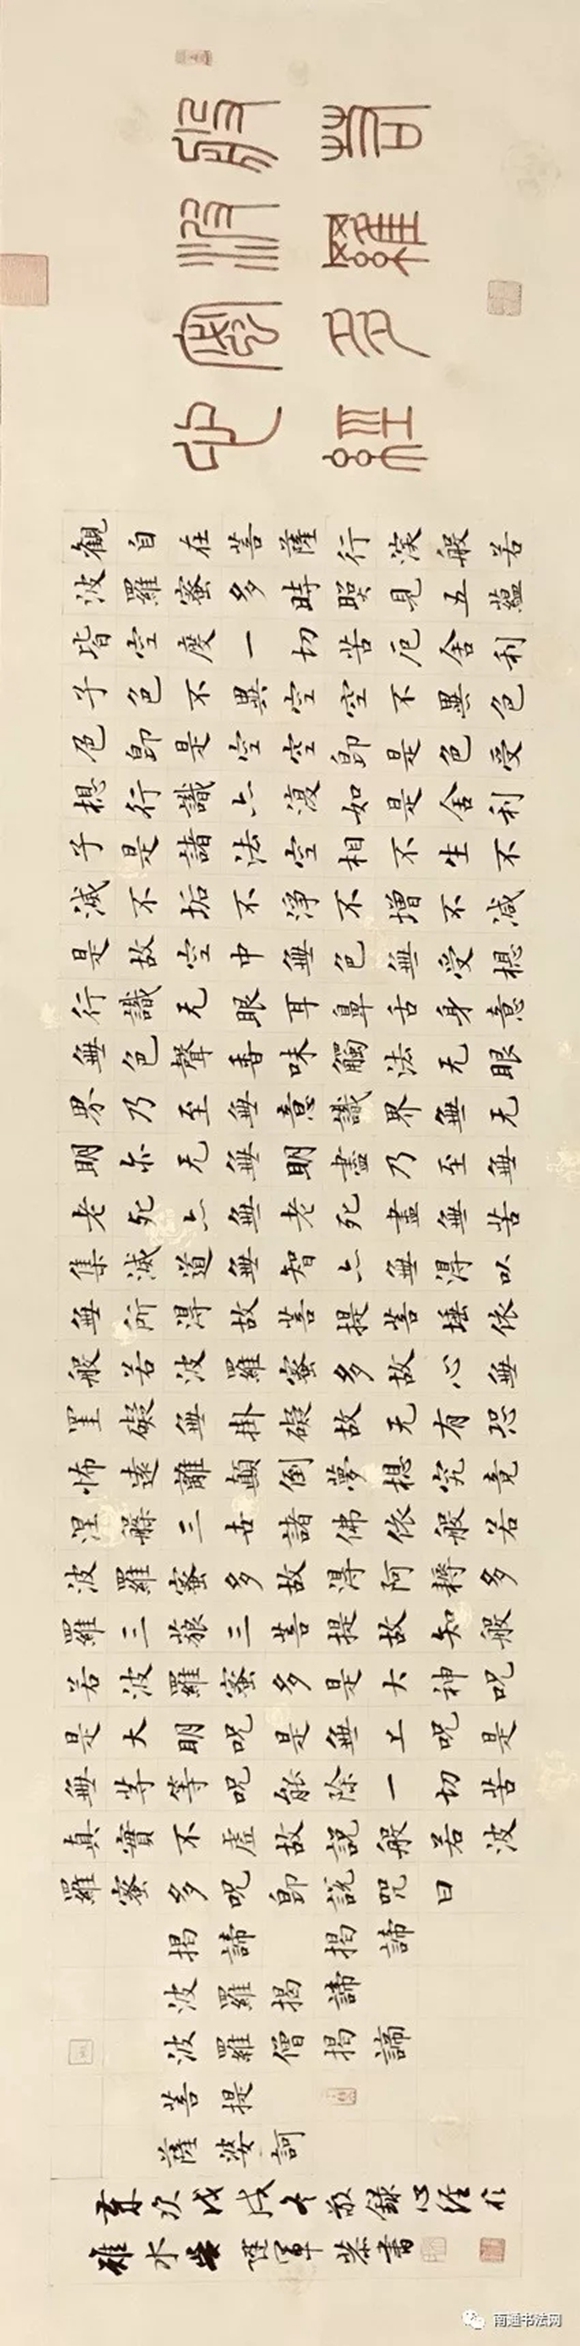 般若
波羅
蜜多
心經
觀自在菩薩行深般若
波羅蜜多時照見五蘊
皆空度一切苦厄舍利
子色不異空空不異色
色即是空空即是色受
想行識亦復如是舍利
子是諸法空相不生不
滅不垢不淨不增不減
是故空中無色無受想
行識无眼耳鼻舌身意
無色聲香味觸法无眼
界乃至無意識界無无
明亦无無明盡乃至無
老死亦無老死盡無苦
集滅道無智亦無得以
無所得故菩提菩埵依
般若波羅蜜多故心無
罣礙無掛礙故无有恐
怖遠離顛倒夢想究竟
涅槃三世諸佛依般若
波羅蜜多故得阿耨多
羅三藐三菩提故知般
若波羅蜜多是大神咒
是大明咒是無上咒是
無等等咒能除一切苦
真實不虛故說般若波
羅蜜多咒即說咒曰
揭諦 揭諦
波羅揭諦
波羅僧揭諦
菩提
薩婆訶
歲次戊戌冬敬錄心經於
雉水 軍恭書
南通书法网